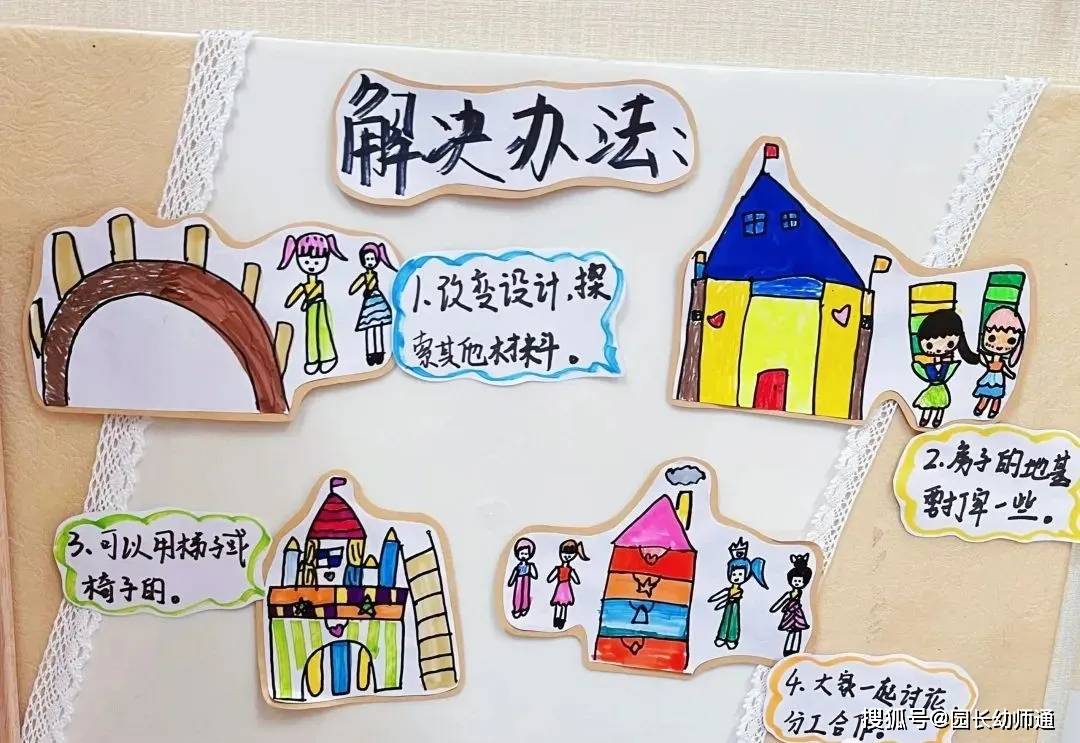 解决办法:
1.改变设计,探
索其他材料。
2.房子的地基
要打牢一些。
3、可以用梯子或
椅子的。
4.大家一起讨论,
分工合作。
搜狐号@园长幼师通